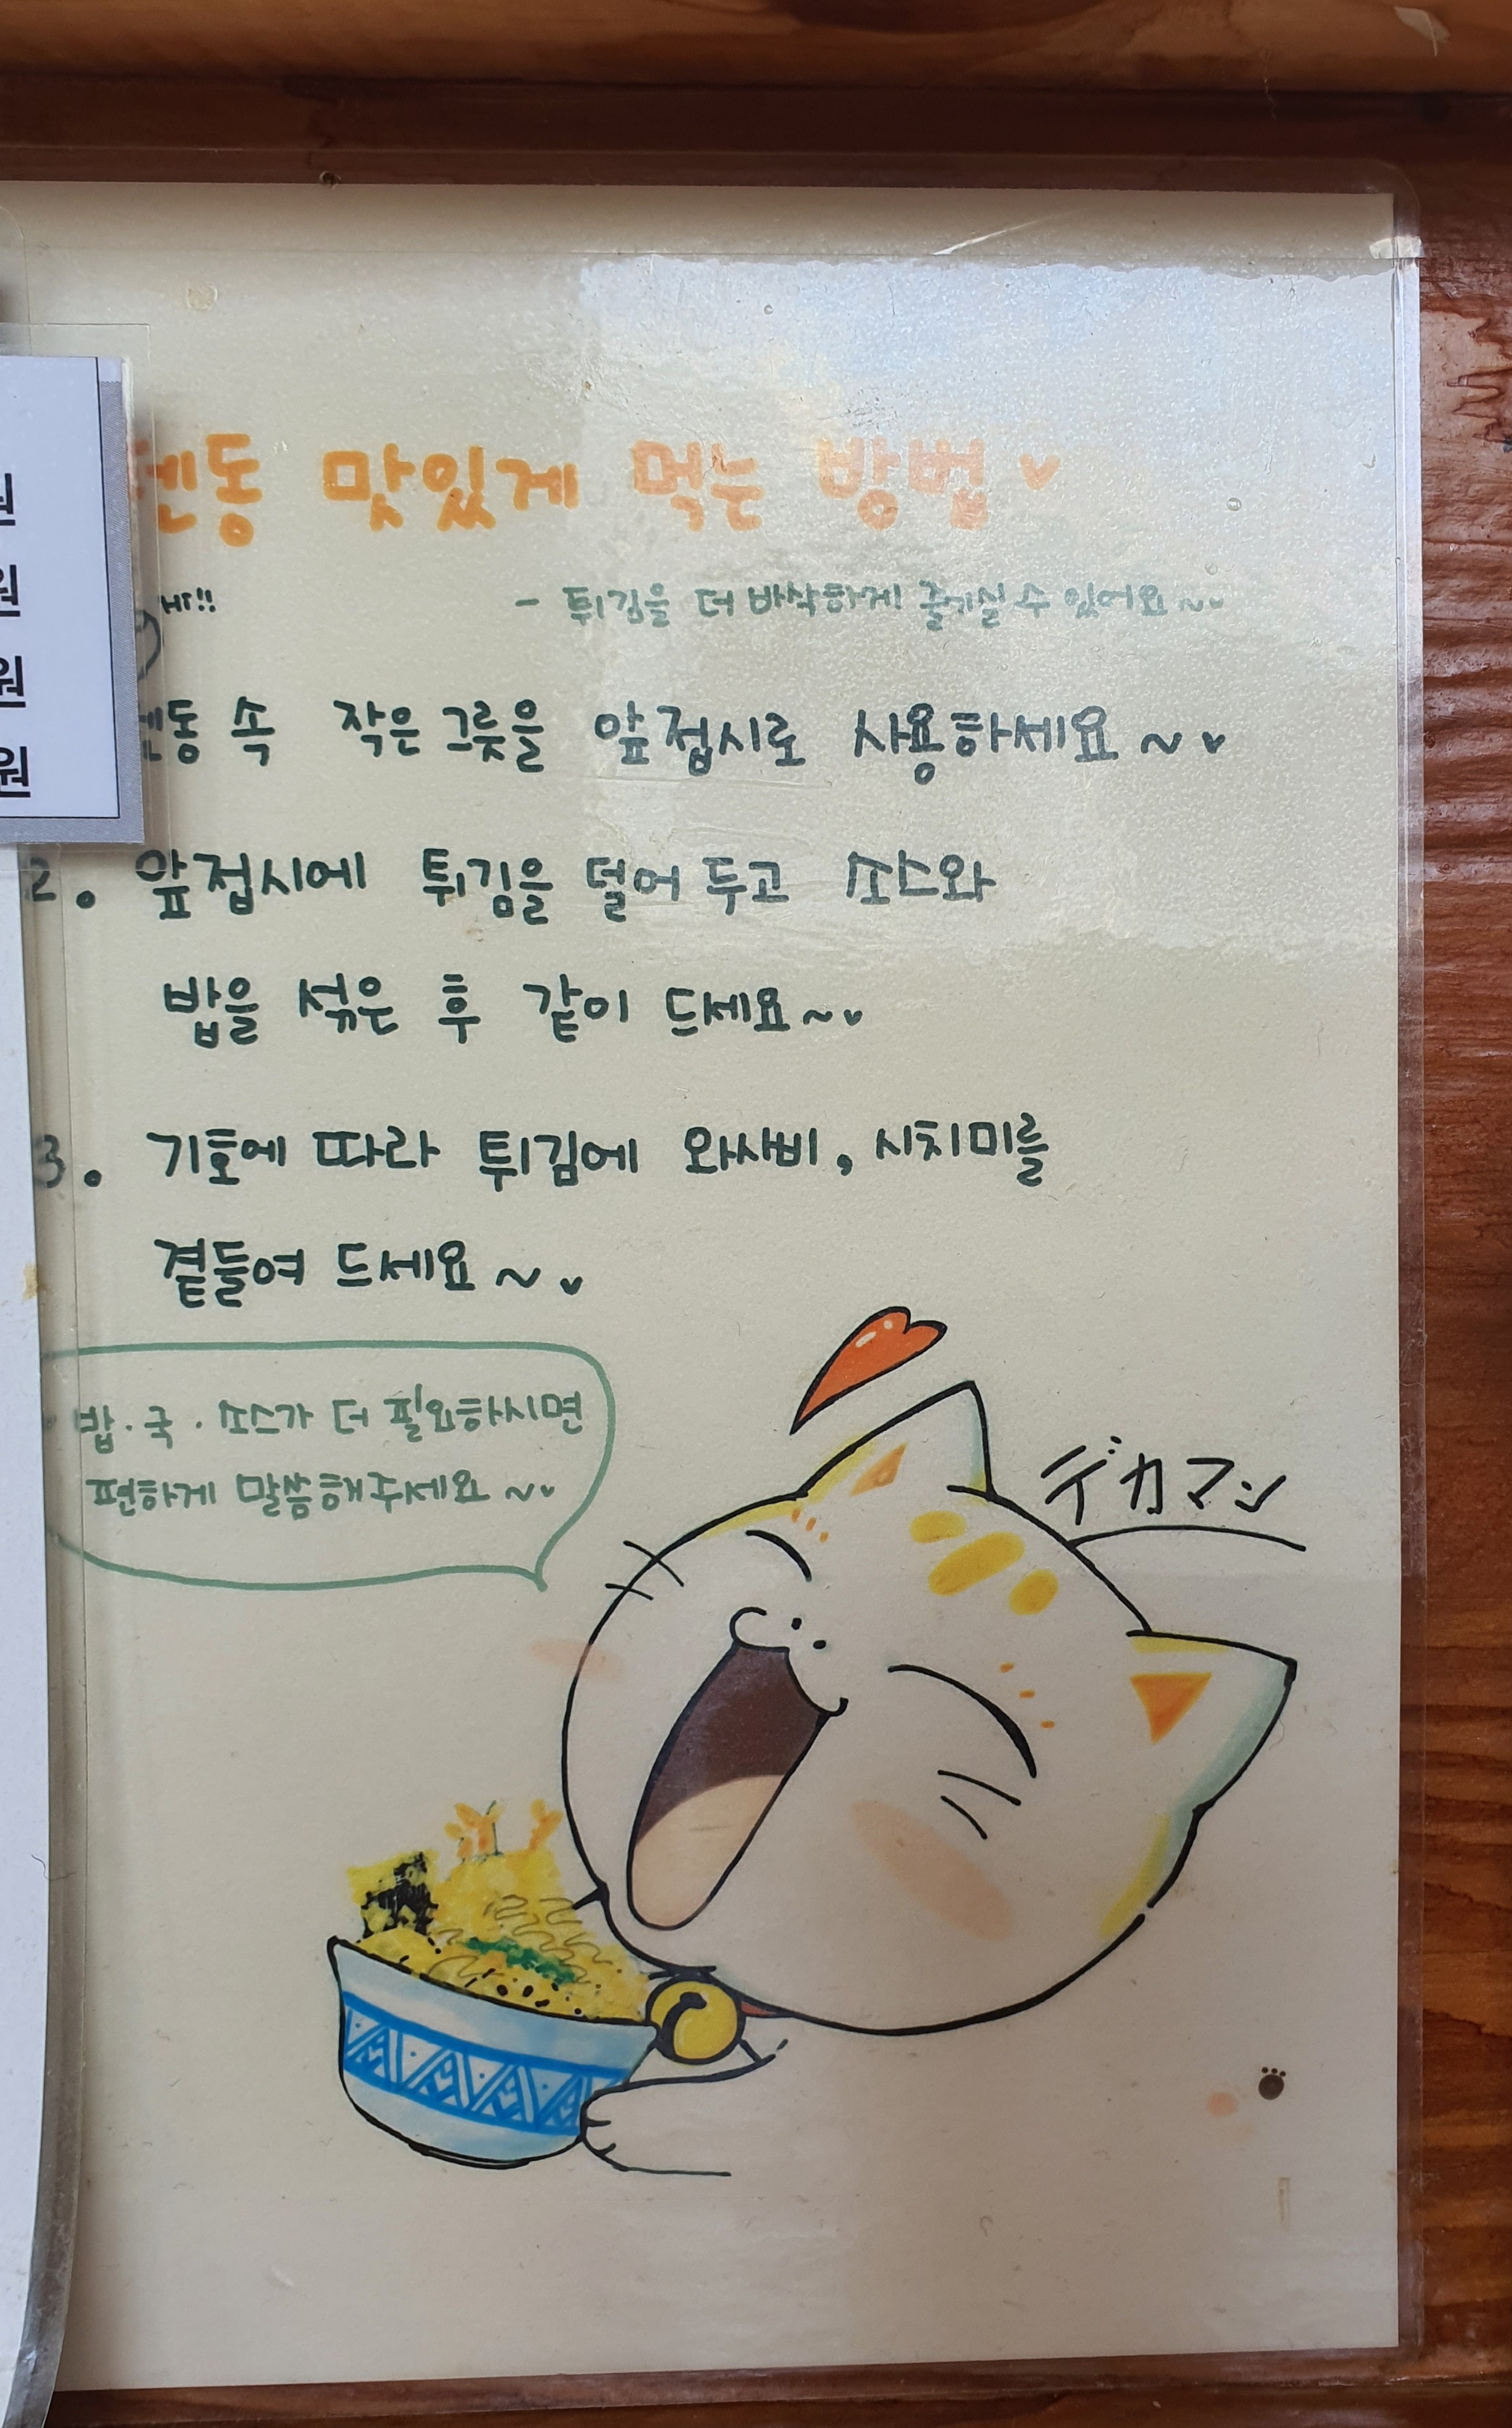 텐동 맛있게 먹는 방법
- 튀김을 더 바삭하게 즐기실 수 있어요~
텐동 속 작은 그릇을 앞접시로 사용하세요~
2. 앞접시에 튀김을 덜어 두고 소스와
밥을 섞은 후 같이 드세요~
3. 기호에 따라 튀김에 와사비, 시치미를
곁들여 드세요~
밥·국·소스가 더 필요하시면
편하게 말씀해주세요~
デカマン
원
원
원